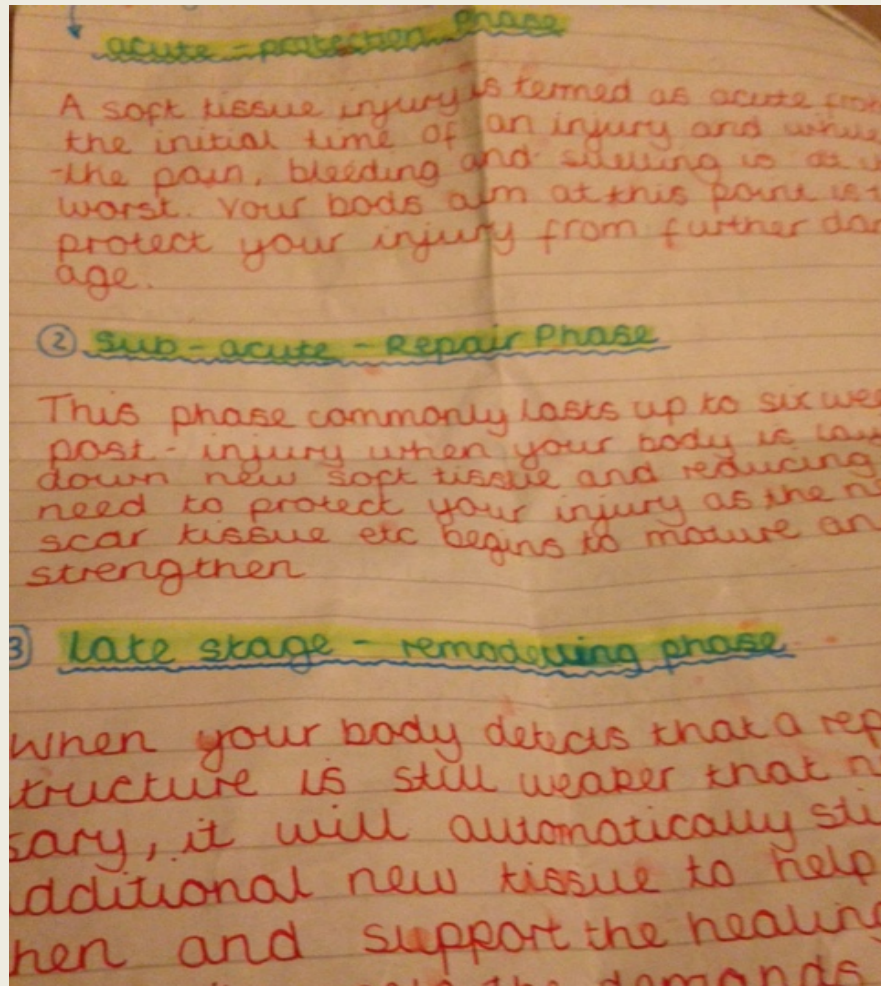 acute - protection Phase
A soft tissue injury is termed as acute
the initial time of an injury and
the pain, bleeding and swelling is at
worst. Your bods aim at this point is
protect your injury from further
age.
② Sub - acute - Repair Phase
This phase commonly lasts up to six
post - injury when your body is
down new soft tissue and reducing
need to protect your injury as the
scar tissue etc begins to mature
strengthen
3 Late stage - remodelling phase
When your body detects that a
tructure is still weaker that
sary, it will automatically
dditional new tissue to help
hen and support the healing
the demands